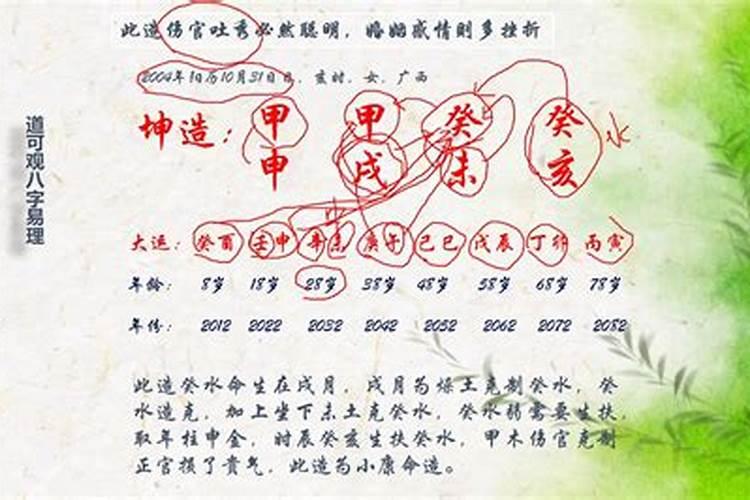 此造伤官吐秀必然聪明，婚姻感情则多挫折
2004年阳历10月31日，亥时，女，广西
道可观八字易理
坤造：甲 甲 癸 癸 水
申 戌 未 亥
大运：癸酉 壬申 辛未 庚午 己巳 戊辰 丁卯 丙寅
年龄： 8岁 18岁 28岁 38岁 48岁 58岁 68岁 78岁
年份： 2012 2022 2032 2042 2052 2062 2072 2082
此造癸水命生在戌月，戌月为燥土克制癸水，癸
水造克，加上坐下未土克癸水，癸水弱需要生扶，
取年柱申金，时辰癸亥生扶癸水，甲木伤官克制
正官损了贵气，此造为小康命造。